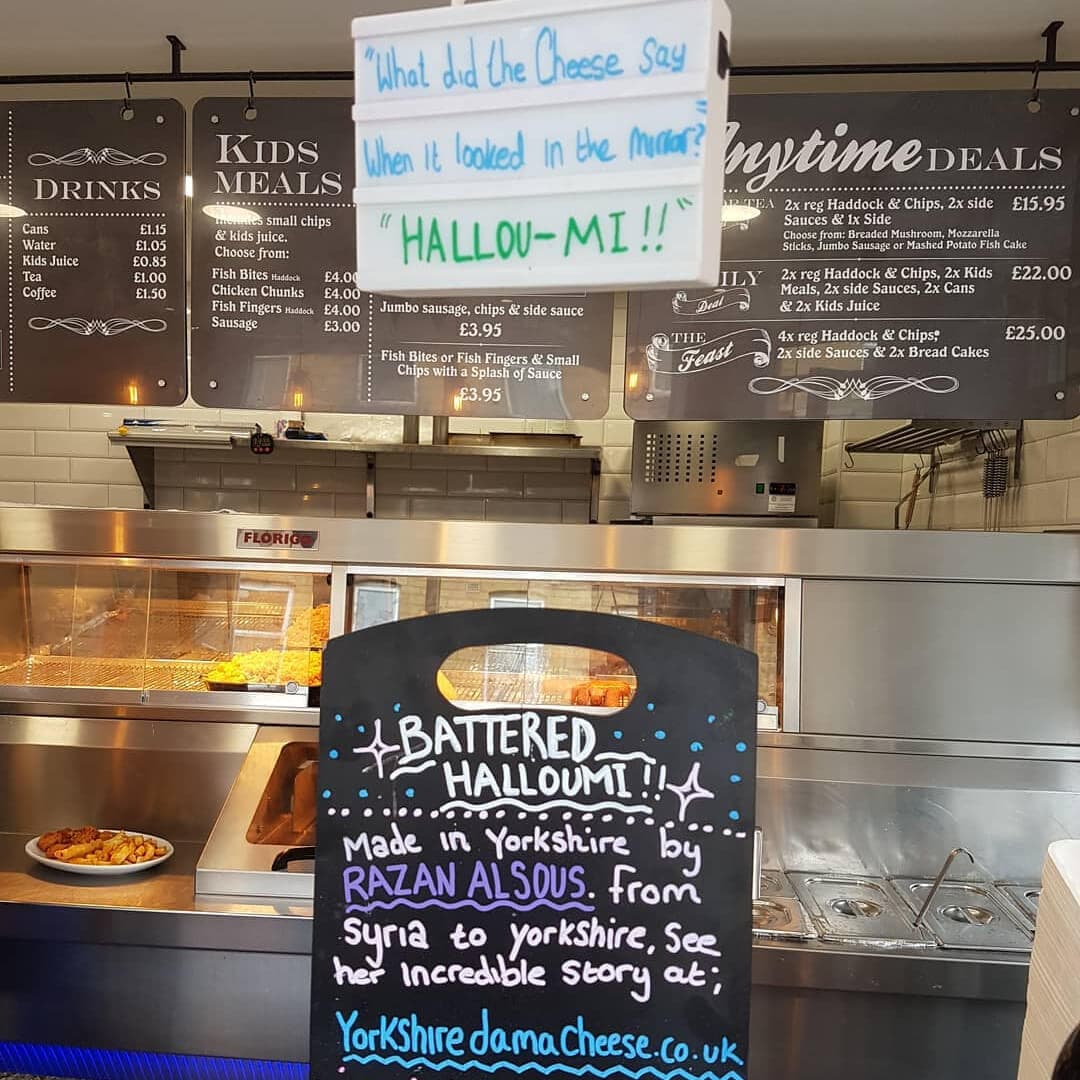 "What did the Cheese Say
When it looked in the mirror?"
"HALLOU-MI!!"
DRINKS
Cans £1.15
Water £1.05
Kids Juice £0.85
Tea £1.00
Coffee £1.50
KIDS
MEALS
Includes small chips
& kids juice.
Choose from:
Fish Bites Haddock £4.00
Chicken Chunks £4.00
Fish Fingers Haddock £4.00
Sausage £3.00
Jumbo sausage, chips & side sauce
£3.95
Fish Bites or Fish Fingers & Small
Chips with a Splash of Sauce
£3.95
Anytime DEALS
TEA 2x reg Haddock & Chips, 2x side £15.95
Sauces & 1x Side
Choose from: Breaded Mushroom, Mozzarella
Sticks, Jumbo Sausage or Mashed Potato Fish Cake
ILY Deal 2x reg Haddock & Chips, 2x Kids £22.00
Meals, 2x side Sauces, 2x Cans
& 2x Kids Juice
THE Feast 4x reg Haddock & Chips, £25.00
2x side Sauces & 2x Bread Cakes
FLORIGO
BATTERED
HALLOUMI!!
Made in Yorkshire by
RAZAN ALSOUS. from
Syria to yorkshire, See
her incredible story at;
Yorkshiredamacheese.co.uk